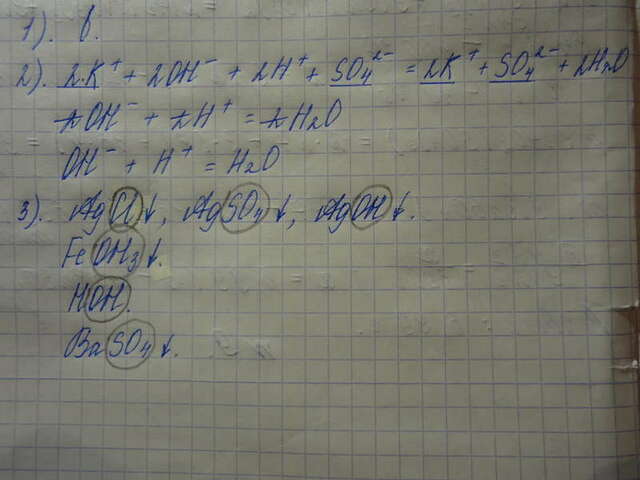 1). в.
2). 2K⁺ + 2OH⁻ + 2H⁺ + SO₄²⁻ = 2K⁺ + SO₄²⁻ + 2H₂O
2OH⁻ + 2H⁺ = 2H₂O
OH⁻ + H⁺ = H₂O
3). AgCl↓, AgSO₄↓, AgOH↓.
FeOH₃↓.
HOH.
BaSO₄↓.